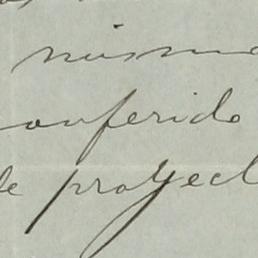 mismo
conferido
de proyect